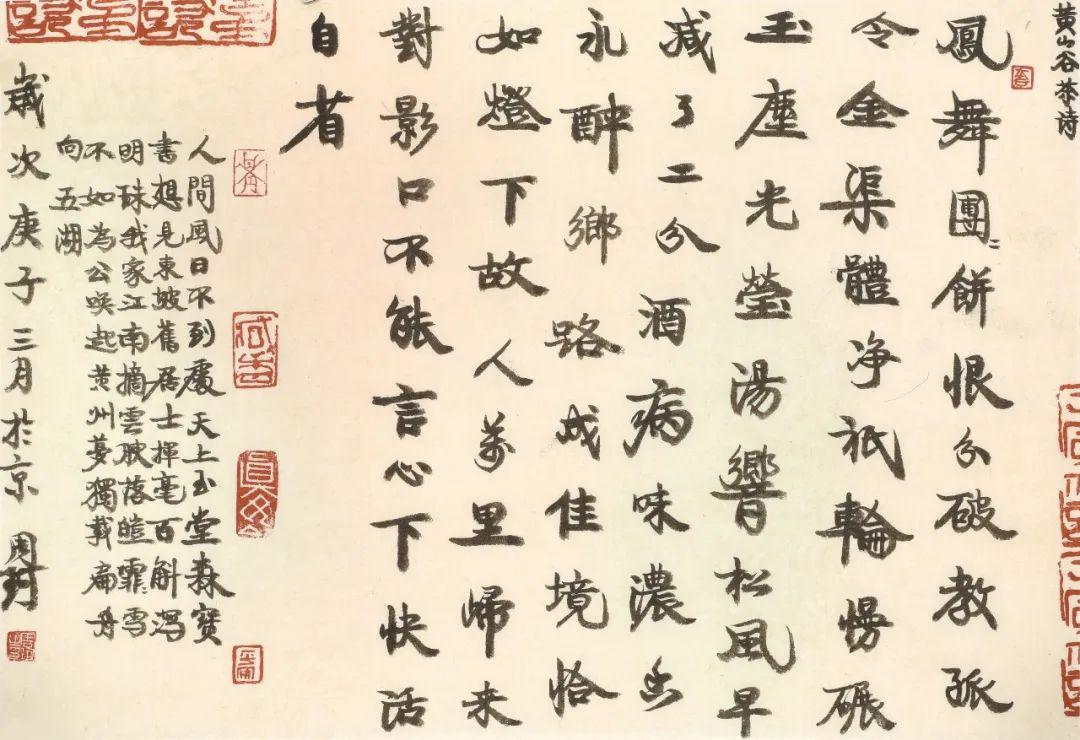 黄山谷茶诗
鳳舞團〻餅恨分破教孤
令金渠體净衹輪慢碾
玉座光瑩湯響松風早
减了二分酒病味濃香
永醉鄉路成佳境恰
如燈下故人萬里歸来
對影口不能言心下快活
自省
人間風日不到處天上玉堂森寶
書想見東坡舊居士揮毫百斛瀉
明珠我家江南摘雲腴落磑霏〻雪
不如為公喚起黄州夢獨載扁舟
向五湖
歲次庚子三月於京 周